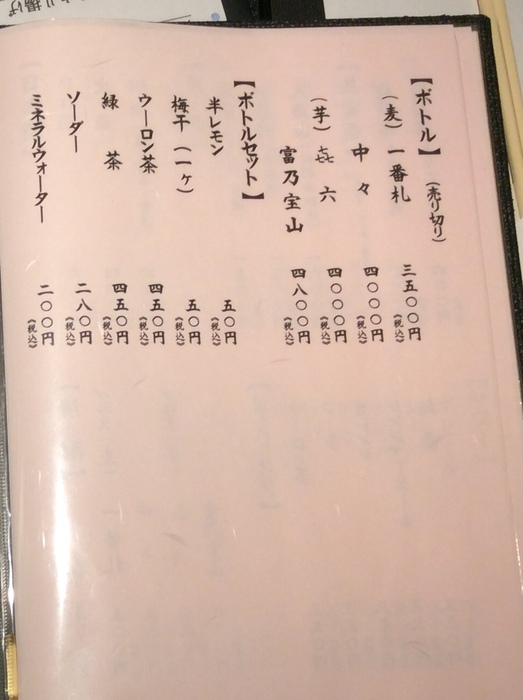 【ボトル】(売り切り)
(麦)一番札 三五〇〇円(税込)
中々 四〇〇〇円(税込)
(芋)㐂六 四〇〇〇円(税込)
富乃宝山 四八〇〇円(税込)
【ボトルセット】
半レモン 五〇円(税込)
梅干(一ヶ) 五〇円(税込)
ウーロン茶 四五〇円(税込)
緑茶 四五〇円(税込)
ソーダー 二八〇円(税込)
ミネラルウォーター 二〇〇円(税込)